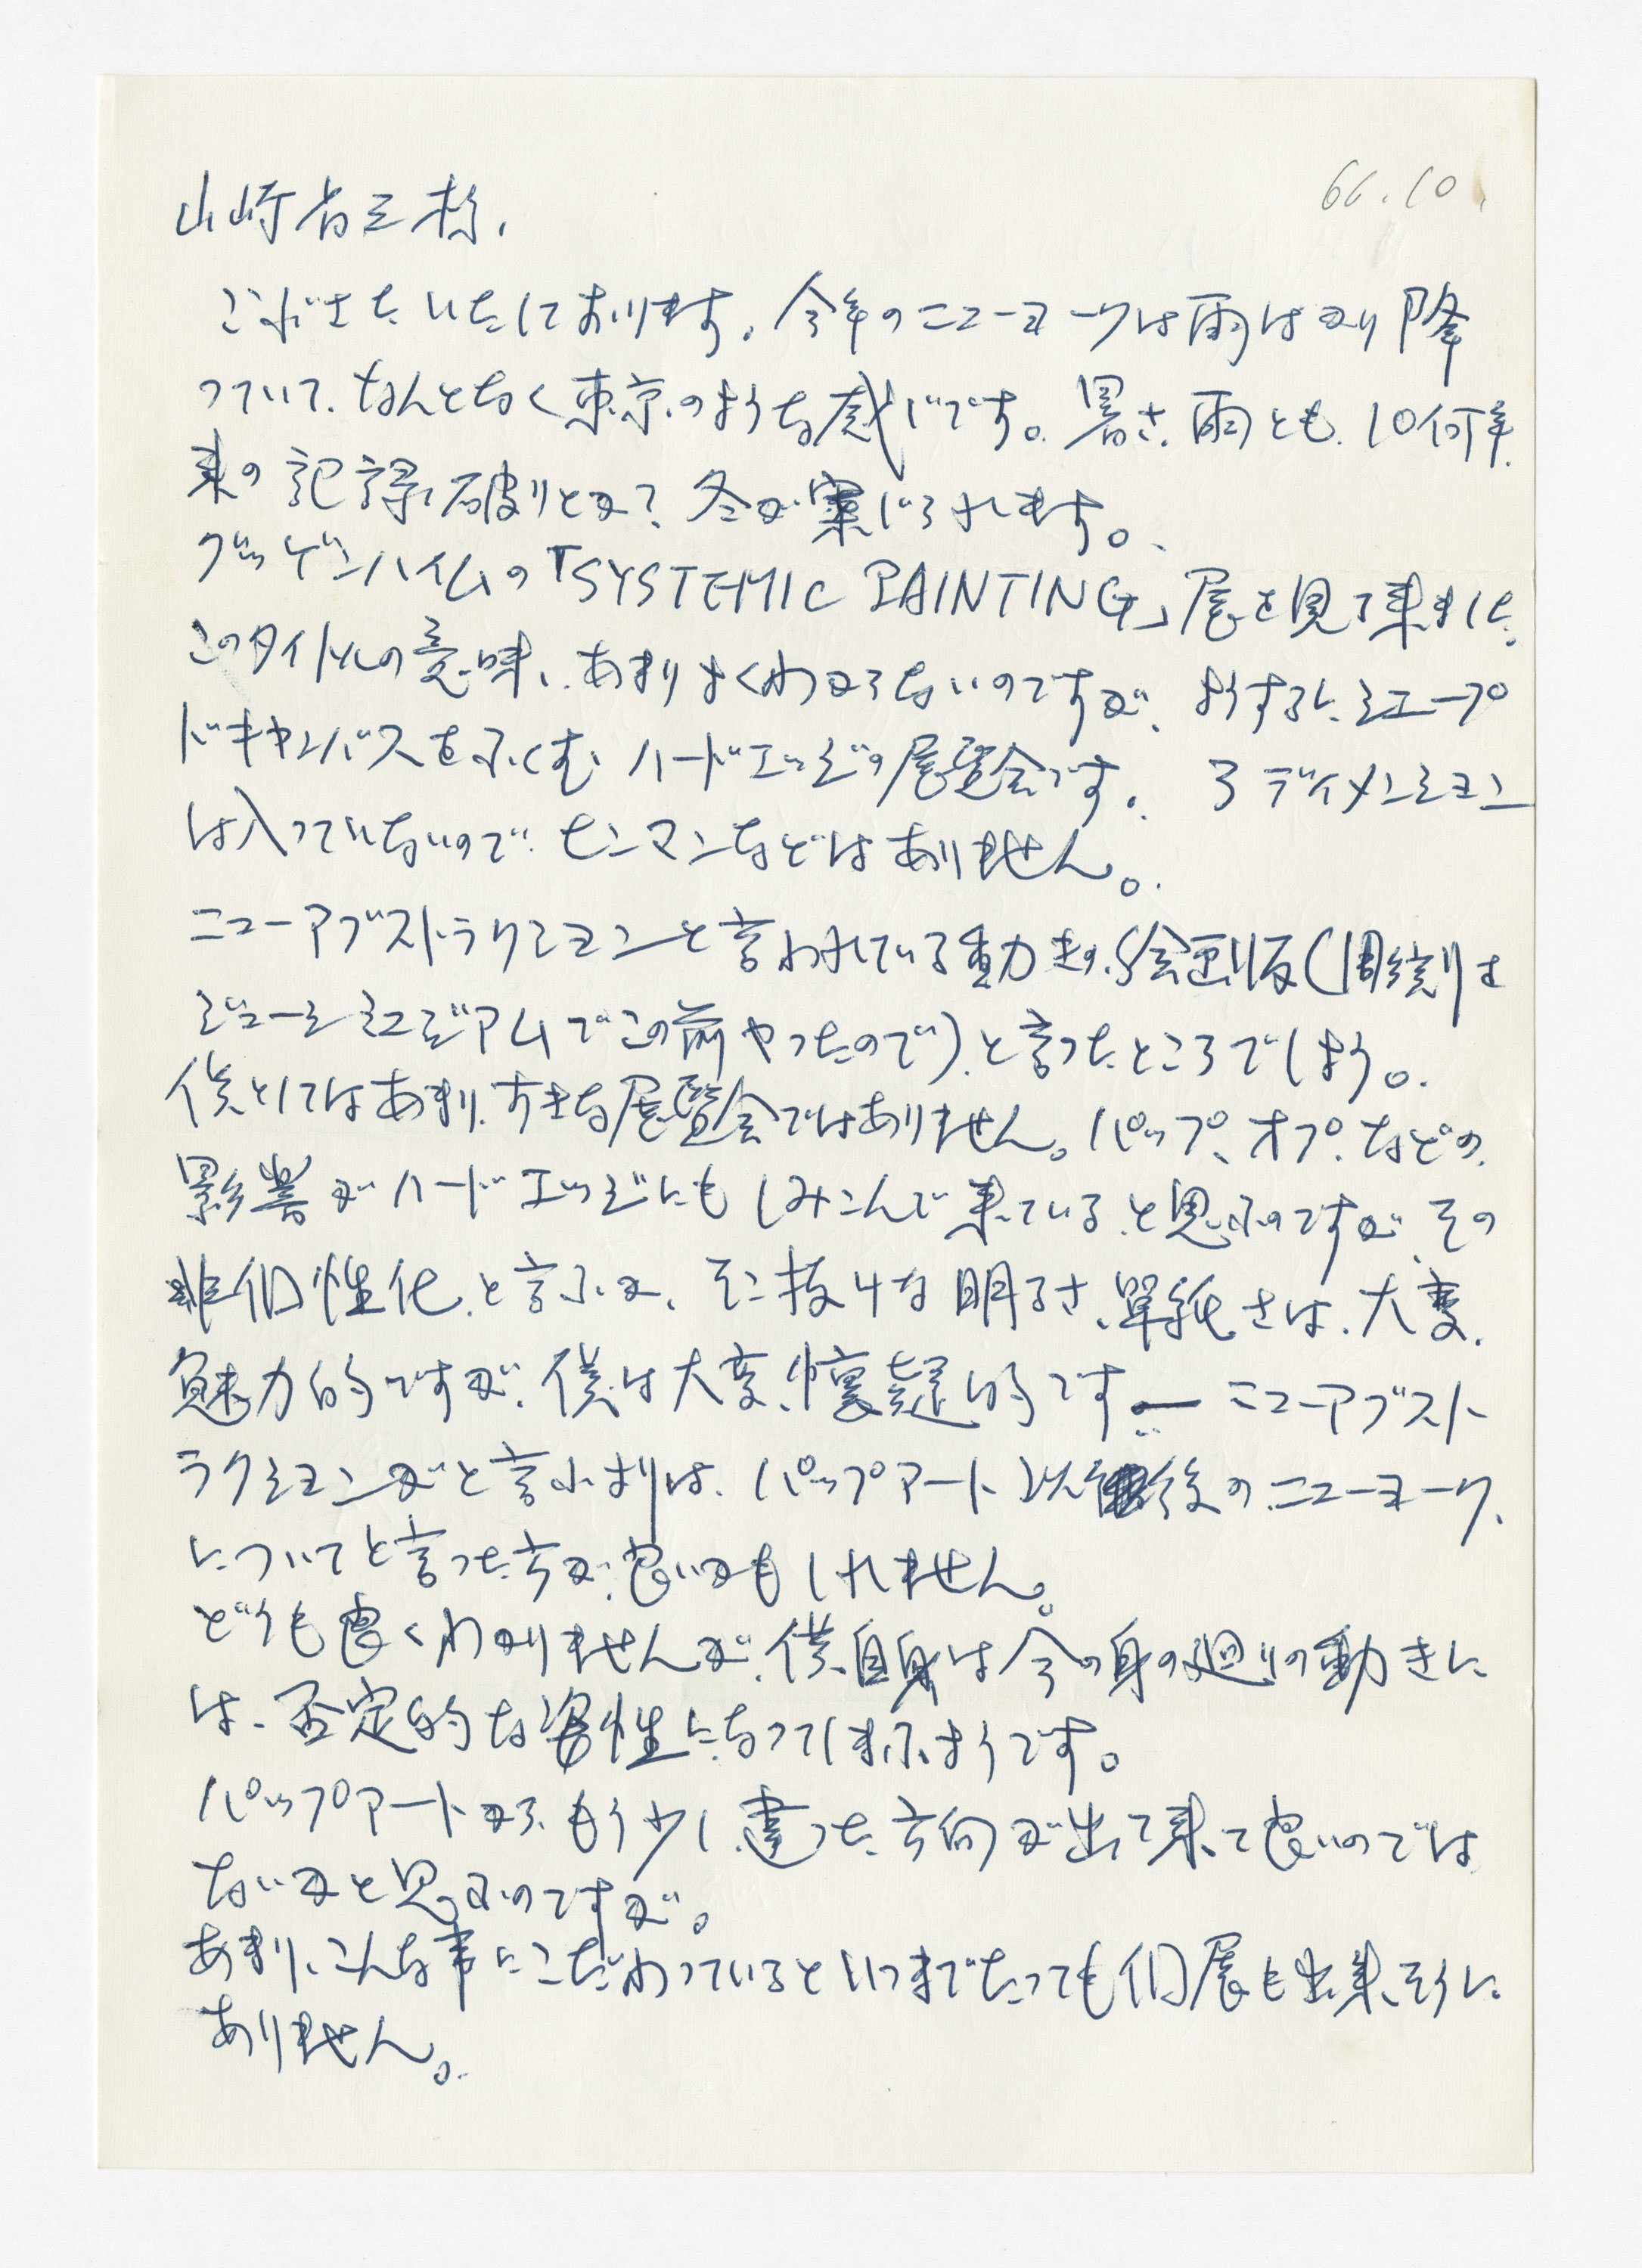 66.10.
山崎省三様.
ごぶさたいたしております。今年のニューヨークは雨ばかり降
っていて、なんとなく東京のような感じです。暑さ、雨とも、10何年
来の記録破りとか？冬が案じられます。
グッゲンハイムの「SYSTEMIC PAINTING」展を見て来ました。
このタイトルの意味、あまりよくわからないのですが、ようするに、シエープ
ドキャンバスをふくむハードエッジの展覧会です。 3ディメンション
は入っていないので、センマンなどはありません。
ニューアブストラクションと言われている動きの、絵画版（彫刻は
ジューシミュジアムでこの前やったので）、と言ったところでしょう。
僕としてはあまり、すきな展覧会ではありません。パップ、オプ、などの、
影響がハードエッジにもしみこんで来ている、と思ふのですが、その
非個性化、と言ふか、そこ抜けな明るさ、単純さは、大変、
魅力的ですが、僕は大変、懐疑的です— ニューアブスト
ラクションがと言ふよりは、パップアート以後のニューヨーク、
についてと言った方が、良いかもしれません。
どうも良くわかりませんが、僕自身は今の身の廻りの動きに
は、否定的な姿性になってしまふようです。
パップアートから、もう少し、違った、方向が出て来て良いのでは
ないかと思ふのですが。
あまり、こんな事にこだわっているといつまでたっても個展も出来そうに
ありません。